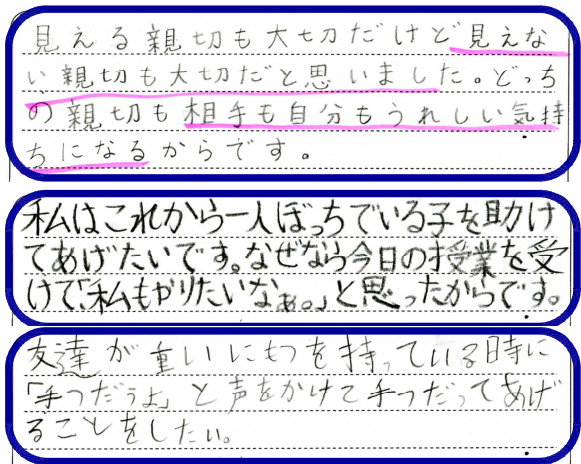 見える親切も大切だけど見えな
い親切も大切だと思いました。どっち
の親切も相手も自分もうれしい気持
ちになるからです。
私はこれから一人ぼっちでいる子を助け
てあげたいです。なぜなら今日の授業を受
けて、「私もやりたいなぁ。」と思ったからです。
友達が重いにもつを持っている時に
「手つだうよ」と声をかけて手つだってあげ
ることをしたい。